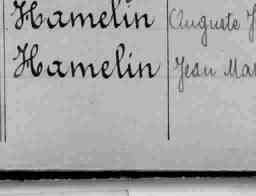 Hamelin Auguste
Hamelin Jean